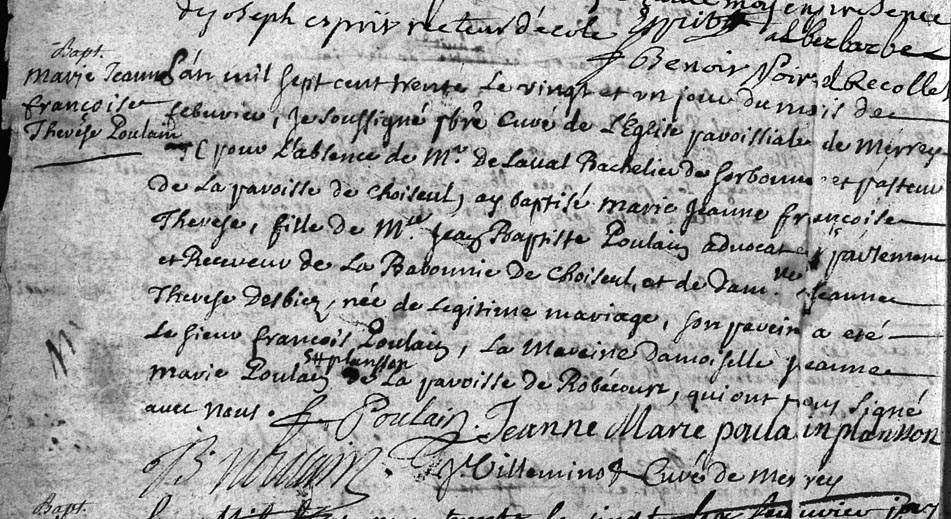 de joseph esprit recteur d'ecole
Benoit Noirs d Recolle
Bapt.
Marie Jeanne
françoise
Therese Poulain
L'an mil sept cent trente le vingt et vn jour du mois de
febuvier, Je soussigné pbrê Curé de L'Eglise paroissiale de Merrey
et pour L'absence de Mr. de Laval Bachelier de Sorbonne et pasteur
de La paroisse de Choiseul, ay baptisé marie Jeanne françoise
Therese, fille de Mre. Jean Baptiste Poulain advocat parlement
et Receveur de La Baronnie De Choiseul, et de Dam. Jeanne
Therese Desbiez, née de Legitime mariage, son parein a eté
Le sieur françois Poulain, La Mareine damoiselle Jeanne
planson
marie Poulain de La paroisse de Robécourt, qui ont tous signé
avec nous. f Poulain. Jeanne Marie poulain planson
Villemin Curé de Merrey
Bapt.